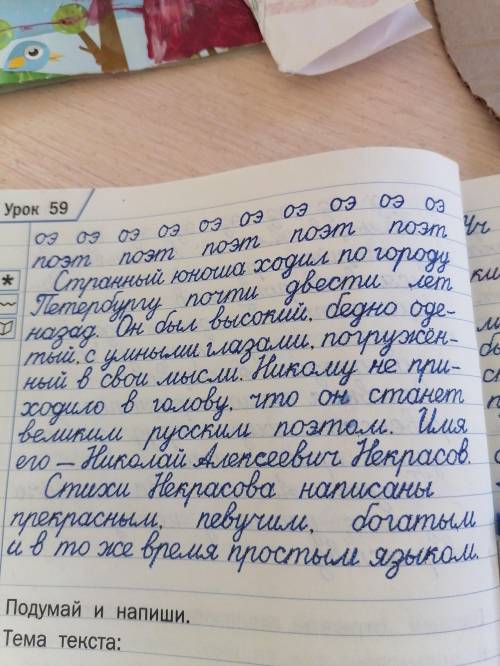 Урок 59
оэ оэ оэ оэ оэ оэ оэ оэ оэ оэ
поэт поэт поэт поэт поэт
Странный юноша ходил по городу
Петербургу почти двести лет
назад. Он был высокий, бедно оде-
тый, с умными глазами, погружён-
ный в свои мысли. Никому не при-
ходило в голову, что он станет
великим русским поэтом. Имя
его – Николай Алексеевич Некрасов.
Стихи Некрасова написаны
прекрасным, певучим, богатым
и в то же время простым языком.
Подумай и напиши.
Тема текста: